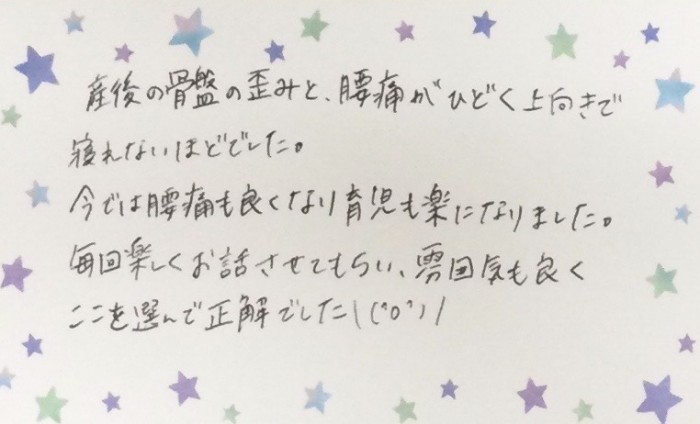 産後の骨盤の歪みと、腰痛がひどく上向きで
寝れないほどでした。
今では腰痛も良くなり育児も楽になりました。
毎回楽しくお話させてもらい、雰囲気も良く
ここを選んで正解でした\(^o^)/